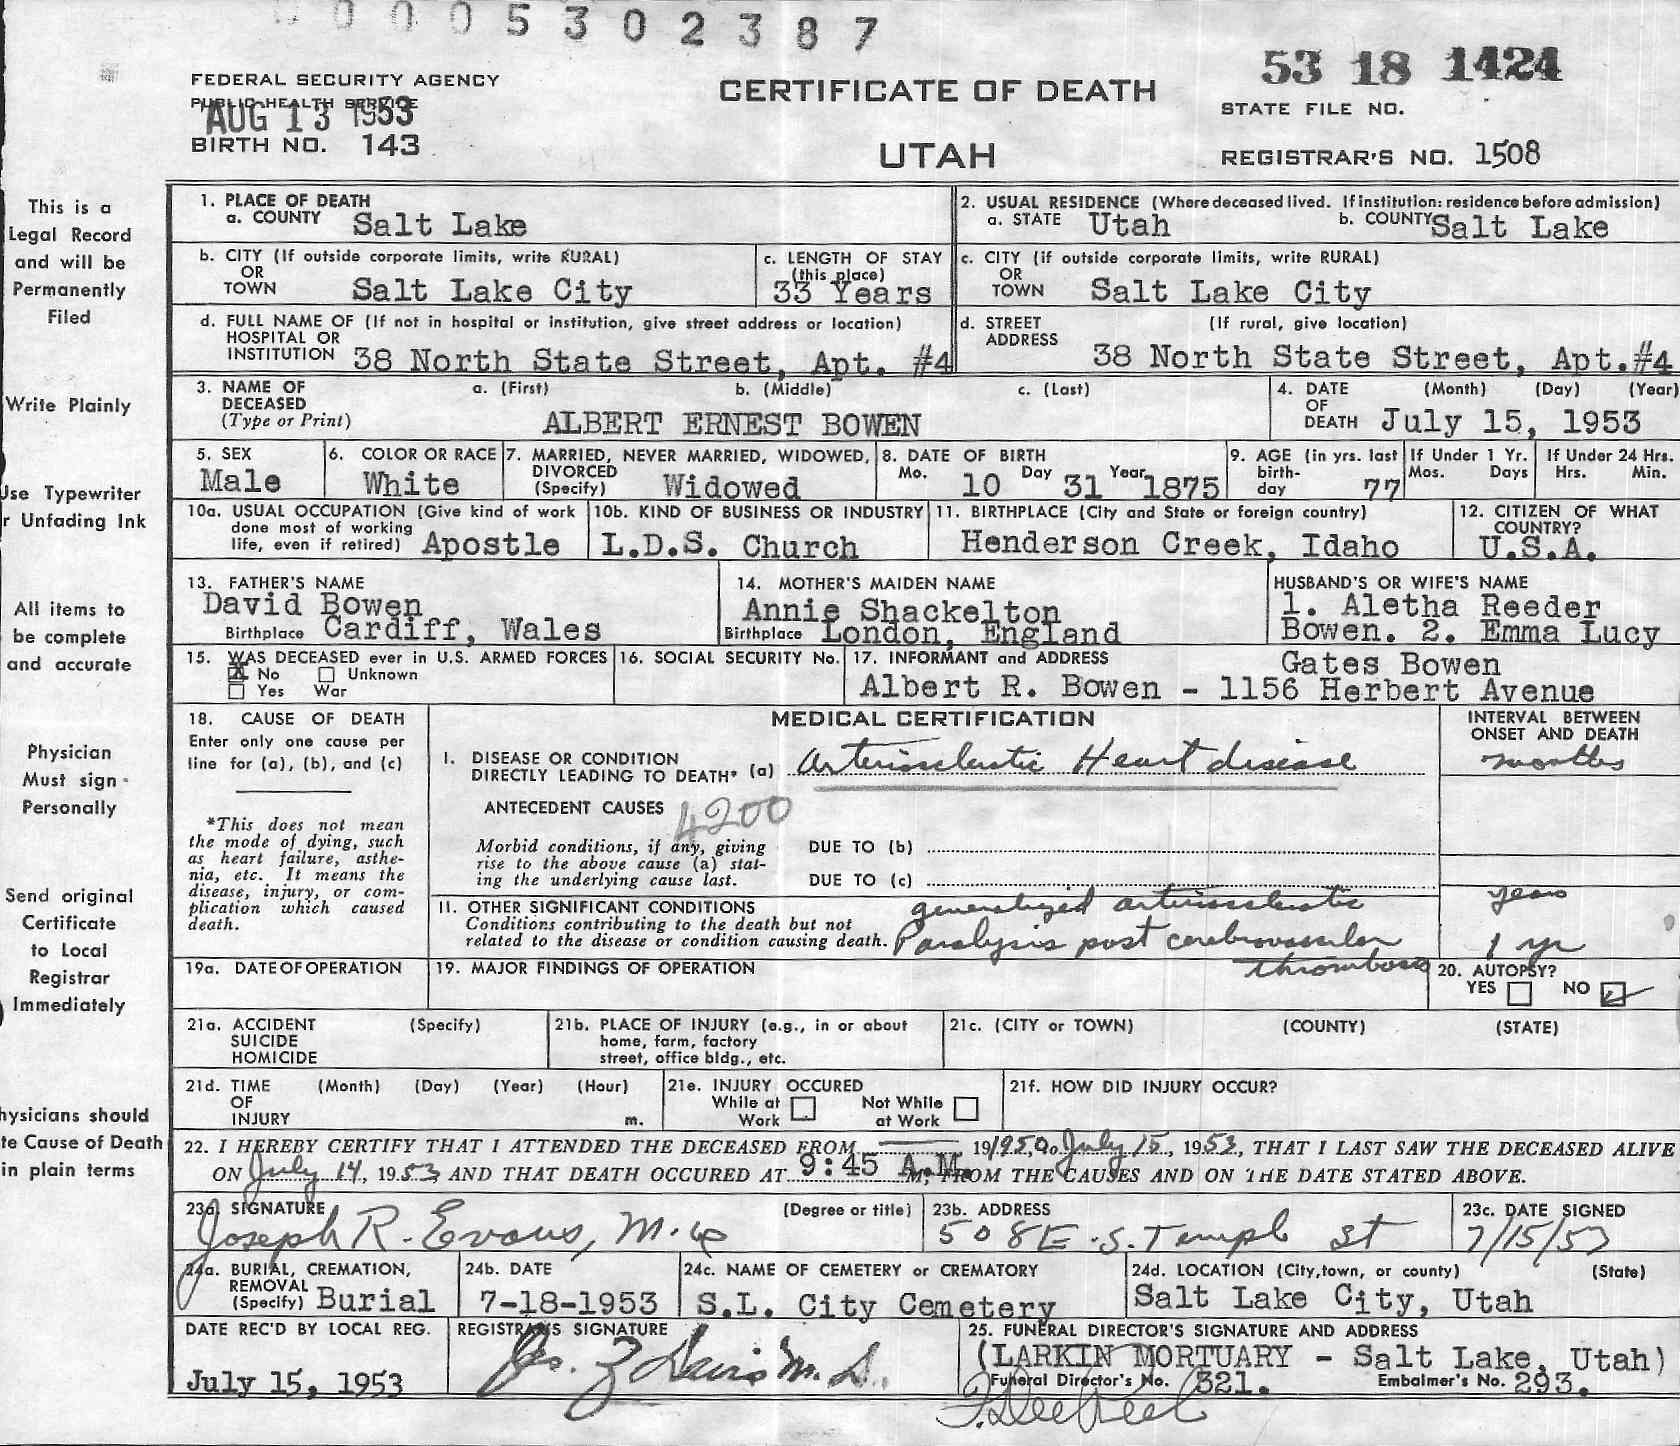 0005302387
53 18 1424
FEDERAL SECURITY AGENCY
PUBLIC HEALTH SERVICE
AUG 13 1953
BIRTH NO. 143
CERTIFICATE OF DEATH
UTAH
STATE FILE NO.
REGISTRAR'S NO. 1508
This is a
Legal Record
and will be
Permanently
Filed
Write Plainly
Use Typewriter
r Unfading Ink
All items to
be complete
and accurate
Physician
Must sign
Personally
Send original
Certificate
to Local
Registrar
Immediately
hysicians should
te Cause of Death
in plain terms
1. PLACE OF DEATH
a. COUNTY Salt Lake
2. USUAL RESIDENCE (Where deceased lived. If institution: residence before admission)
a. STATE Utah b. COUNTY Salt Lake
b. CITY (If outside corporate limits, write RURAL)
OR
TOWN Salt Lake City
c. LENGTH OF STAY
(this place)
33 Years
c. CITY (if outside corporate limits, write RURAL)
OR
TOWN Salt Lake City
d. FULL NAME OF (If not in hospital or institution, give street address or location)
HOSPITAL OR
INSTITUTION 38 North State Street, Apt. #4
d. STREET (If rural, give location)
ADDRESS 38 North State Street, Apt.#4
3. NAME OF a. (First) b. (Middle) c. (Last)
DECEASED
(Type or Print) ALBERT ERNEST BOWEN
4. DATE (Month) (Day) (Year)
OF
DEATH July 15, 1953
5. SEX
Male
6. COLOR OR RACE
White
7. MARRIED, NEVER MARRIED, WIDOWED,
DIVORCED
(Specify) Widowed
8. DATE OF BIRTH
Mo. 10 Day 31 Year 1875
9. AGE (in yrs. last
birth-
day 77
If Under 1 Yr.
Mos. Days
If Under 24 Hrs.
Hrs. Min.
10a. USUAL OCCUPATION (Give kind of work
done most of working
life, even if retired) Apostle
10b. KIND OF BUSINESS OR INDUSTRY
L.D.S. Church
11. BIRTHPLACE (City and State or foreign country)
Henderson Creek, Idaho
12. CITIZEN OF WHAT
COUNTRY?
U.S.A.
13. FATHER'S NAME
David Bowen
Birthplace Cardiff, Wales
14. MOTHER'S MAIDEN NAME
Annie Shackelton
Birthplace London, England
HUSBAND'S OR WIFE'S NAME
1. Aletha Reeder
Bowen. 2. Emma Lucy
Gates Bowen
15. WAS DECEASED ever in U.S. ARMED FORCES
X No Unknown
Yes War
16. SOCIAL SECURITY No.
17. INFORMANT and ADDRESS
Albert R. Bowen - 1156 Herbert Avenue
18. CAUSE OF DEATH
Enter only one cause per
line for (a), (b), and (c)
*This does not mean
the mode of dying, such
as heart failure, asthe-
nia, etc. It means the
disease, injury, or com-
plication which caused
death.
MEDICAL CERTIFICATION
INTERVAL BETWEEN
ONSET AND DEATH
I. DISEASE OR CONDITION
DIRECTLY LEADING TO DEATH* (a) Arteriosclerotic Heart disease months
ANTECEDENT CAUSES 4200
Morbid conditions, if any, giving
rise to the above cause (a) stat-
ing the underlying cause last.
DUE TO (b)
DUE TO (c)
11. OTHER SIGNIFICANT CONDITIONS
Conditions contributing to the death but not
related to the disease or condition causing death.
generalized arteriosclerotic years
Paralysis post cerebrovascular 1 yr
thrombosis
19a. DATE OF OPERATION
19. MAJOR FINDINGS OF OPERATION
20. AUTOPSY?
YES NO ✓
21a. ACCIDENT (Specify)
SUICIDE
HOMICIDE
21b. PLACE OF INJURY (e.g., in or about
home, farm, factory
street, office bldg., etc.
21c. (CITY or TOWN) (COUNTY) (STATE)
21d. TIME (Month) (Day) (Year) (Hour)
OF
INJURY m.
21e. INJURY OCCURED
While at Work
Not While at Work
21f. HOW DID INJURY OCCUR?
22. I HEREBY CERTIFY THAT I ATTENDED THE DECEASED FROM 19 1950, to July 15, 1953, THAT I LAST SAW THE DECEASED ALIVE
ON July 14, 1953 AND THAT DEATH OCCURED AT 9:45 A.M. M, FROM THE CAUSES AND ON THE DATE STATED ABOVE.
23a. SIGNATURE (Degree or title)
Joseph R. Evans, M.D.
23b. ADDRESS
508 E. S. Templ St
23c. DATE SIGNED
7/15/53
24a. BURIAL, CREMATION,
REMOVAL
(Specify) Burial
24b. DATE
7-18-1953
24c. NAME OF CEMETERY or CREMATORY
S.L. City Cemetery
24d. LOCATION (City, town, or county) (State)
Salt Lake City, Utah
DATE REC'D BY LOCAL REG.
July 15, 1953
REGISTRAR'S SIGNATURE
Davis M.D.
25. FUNERAL DIRECTOR'S SIGNATURE AND ADDRESS
(LARKIN MORTUARY - Salt Lake, Utah)
Funeral Director's No. 321. Embalmer's No. 293.